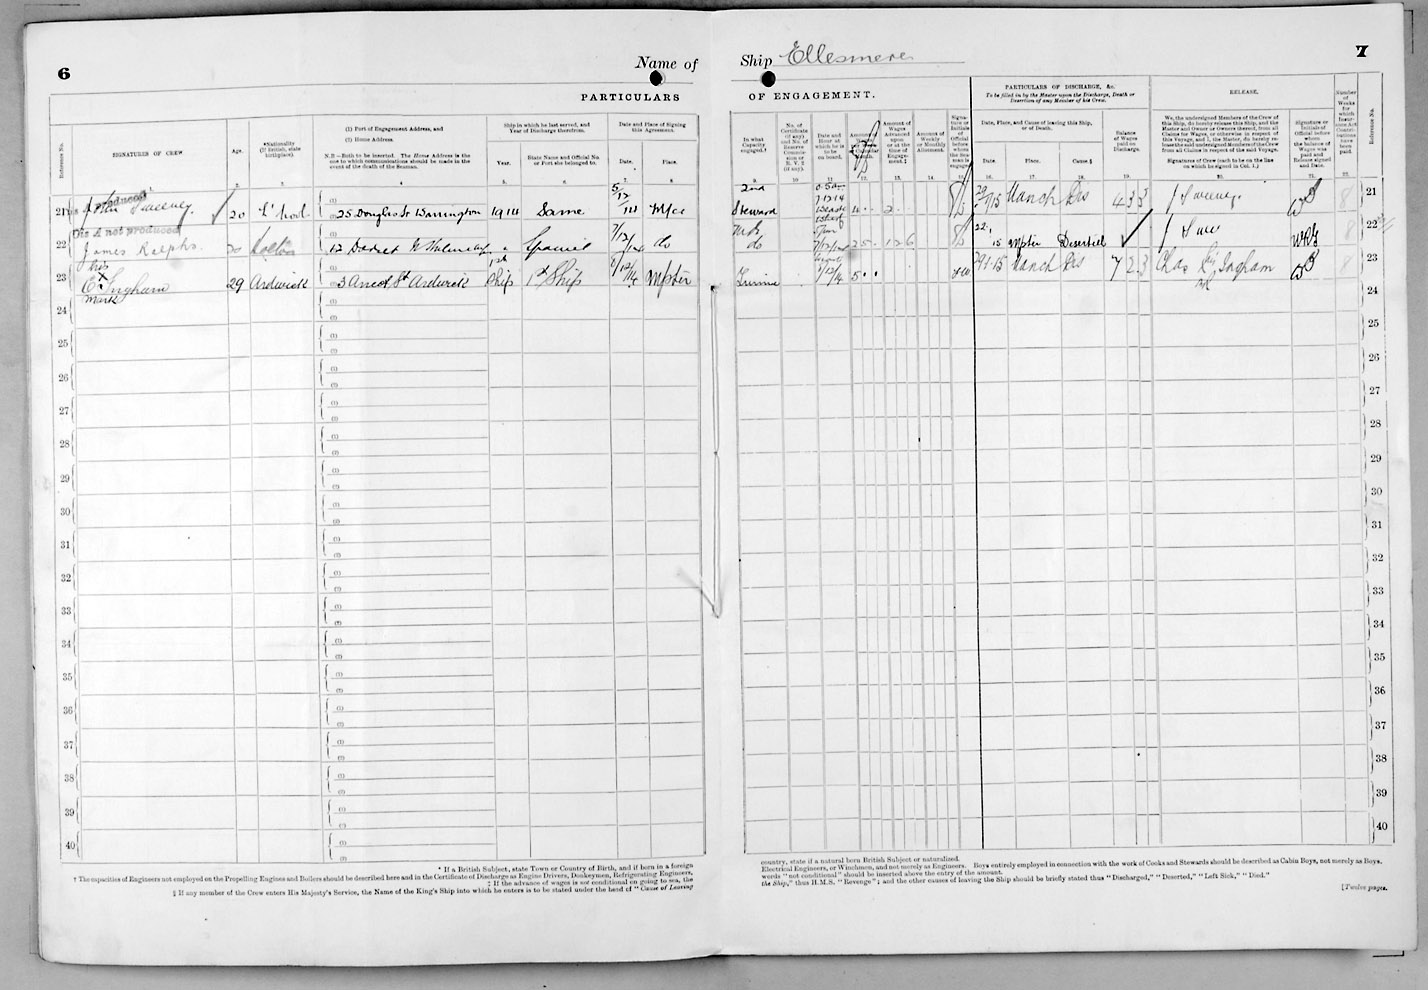 6
Name of
PARTICULARS
Reference No.
SIGNATURES OF CREW
Age.
*Nationality
(If British, state
birthplace).
(1) Port of Engagement Address, and
(2) Home Address.
N.B.—Both to be inserted. The Home Address is the
one to which communications should be made in the
event of the death of the Seaman.
Ship in which he last served, and
Year of Discharge therefrom.
Year.
State Name and Official No.
or Port she belonged to.
Date and Place of Signing
this Agreement.
Date.
Place.
21 John Sweeney. 20 L'pool 25 Douglas St Warrington 1914 Same 5/12/14 M/cr
Dis A not produced
22 James Relphs. 7/12/14 do
23 C Ingham his X mark 29 Ardwick 3 Ancot St Ardwick 1st Ship 1st Ship 1/12/14 M/ster
24
25
26
27
28
29
30
31
32
33
34
35
36
37
38
39
40
* If a British Subject, state Town or Country of Birth, and if born in a foreign
† The capacities of Engineers not employed on the Propelling Engines and Boilers should be described here and in the Certificate of Discharge as Engine Drivers, Donkeymen, Refrigerating Engineers,
‡ If the advance of wages is not conditional on going to sea, the
§ If any member of the Crew enters His Majesty's Service, the Name of the King's Ship into which he enters is to be stated under the head of "Cause of Leaving
7
Ship Ellesmere
OF ENGAGEMENT.
In what
Capacity
engaged.†
No. of
Certificate
(if any)
and No. of
Reserve
Commis-
sion or
R. V. 2
(if any).
Date and
Hour at
which he is
to be
on board.
Amount of
Wages
Advanced
upon
or at the
time of
Engage-
ment.‡
Amount of
Weekly
or Monthly
Allotment.
Signa-
ture or
Initials
of
Official
before
whom
the Sea-
man is
engaged
PARTICULARS OF DISCHARGE, &c.
To be filled in by the Master upon the Discharge, Death or
Desertion of any Member of his Crew.
Date, Place, and Cause of leaving this Ship,
or of Death.
Date.
Place.
Cause.§
Balance
of Wages
paid on
Discharge.
RELEASE.
We, the undersigned Members of the Crew of
this Ship, do hereby release this Ship, and the
Master and Owner or Owners thereof, from all
Claims for Wages, or otherwise in respect of
this Voyage, and I, the Master, do hereby re-
lease the said undersigned Members of the Crew
from all Claims in respect of the said Voyage.
Signatures of Crew (each to be on the line
on which he signed in Col. 1.)
Signature or
Initials of
Official before
whom
the balance of
Wages was
paid and
Release signed
and Date.
Number
of
Weeks
for
which
Insur-
ance Act
Contri-
butions
have
been
paid.
Reference No.
2nd Steward Manch Dis 4 3 3 J Sweeney. 8 21
do 7/12/14 15 M/ster Deserted 8 22
1/12/14 5 29 1 15 Manch Dis 7 2 3 Chas Ingham 8 23
24
25
26
27
28
29
30
31
32
33
34
35
36
37
38
39
40
country, state if a natural born British Subject or naturalized.
Electrical Engineers, or Winchmen, and not merely as Engineers. Boys entirely employed in connection with the work of Cooks and Stewards should be described as Cabin Boys, not merely as Boys.
words "not conditional" should be inserted above the entry of the amount.
the Ship," thus H.M.S. "Revenge"; and the other causes of leaving the Ship should be briefly stated thus "Discharged," "Deserted," "Left Sick," "Died."
[Twelve pages.